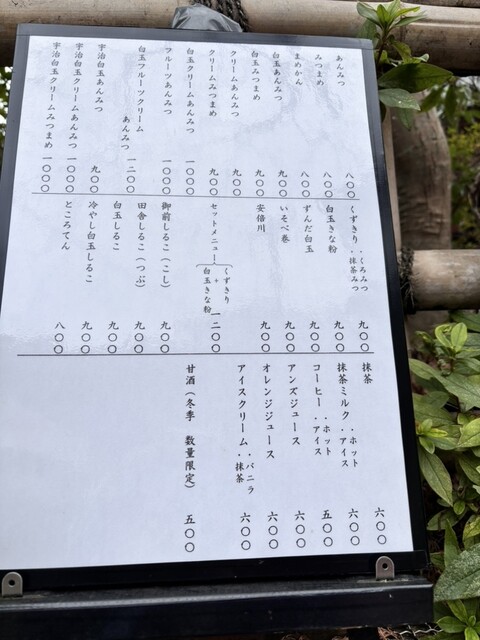 あんみつ 八〇〇
みつまめ 八〇〇
まめかん 八〇〇
白玉あんみつ 九〇〇
白玉みつまめ 九〇〇
クリームあんみつ 九〇〇
クリームみつまめ 九〇〇
白玉クリームあんみつ 一〇〇〇
フルーツあんみつ 一〇〇〇
白玉フルーツクリーム
あんみつ 一二〇〇
宇治白玉あんみつ 九〇〇
宇治白玉クリームあんみつ 一〇〇〇
宇治白玉クリームみつまめ 一〇〇〇
くずきり ・くろみつ
・抹茶みつ 九〇〇
白玉きな粉 九〇〇
ずんだ白玉 九〇〇
いそべ巻 九〇〇
安倍川 九〇〇
セットメニュー(くずきり
+
白玉きな粉) 一二〇〇
御前しるこ(こし) 九〇〇
田舎しるこ(つぶ) 九〇〇
白玉しるこ 九〇〇
冷やし白玉しるこ 九〇〇
ところてん 八〇〇
抹茶 六〇〇
抹茶ミルク ・ホット
・アイス 六〇〇
コーヒー ・ホット
・アイス 五〇〇
アンズジュース 六〇〇
オレンジジュース 六〇〇
アイスクリーム ・バニラ
・抹茶 六〇〇
甘酒(冬季 数量限定) 五〇〇